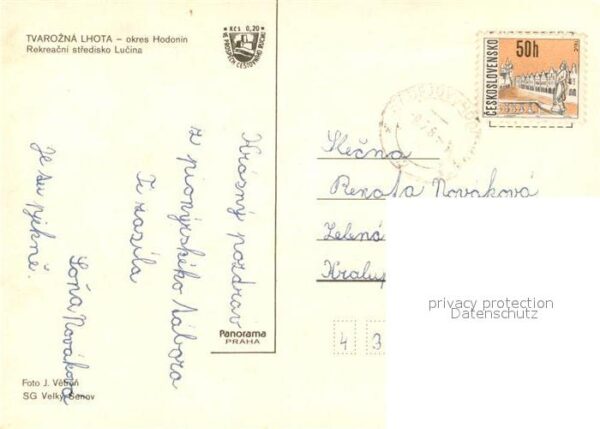 TVAROŽNÁ LHOTA – okres Hodonín
Rekreační středisko Lučina
KČS 0,20
VE PROSPĚCH CESTOVNÍHO RUCHU
ČESKOSLOVENSKO
50h
Krásný pozdrav
z pionýrského tábora
Ti zasílá
Soňa Nováková
Je tu pěkně.
Slečna
Renata Nováková
Zelená
Kralup
4 3
privacy protection
Datenschutz
Panorama
PRAHA
Foto J. Větřín
SG Velký Šenov